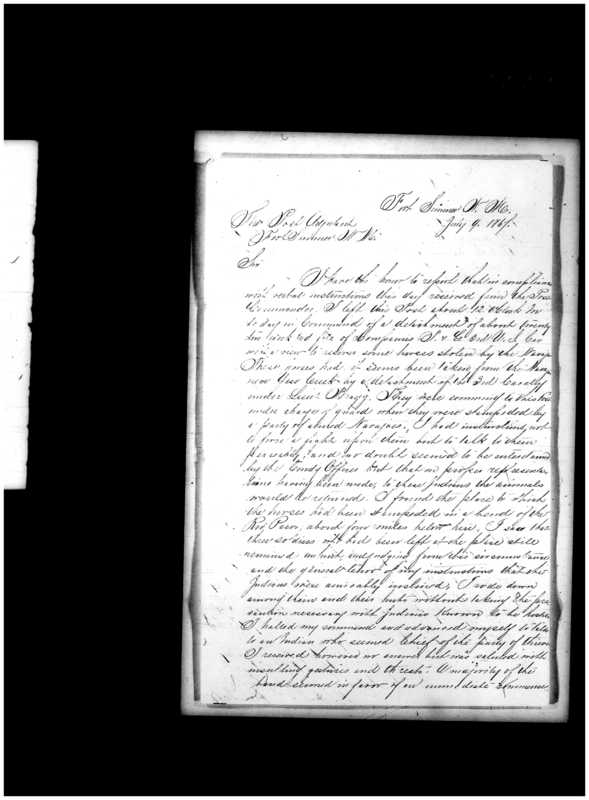 Fort Sumner N. M.
July 9. 1867.
The Post Adjutant
Fort Sumner N. M.
Sir
I have the honor to report that in compliance
with verbal instructions this day received from the Post
Commander. I left this Post about 12 o'clock M
to day in Command of a detachment of about twenty
five rank and file of Companies & G 3rd U.S. Cav
with a view to recover some horses stolen by the Navajos
These horses had, it seems been taken from the
near Creek by a detachment of the 3rd Cavalry
under Lieut. They were coming to this Post
under charge of guard when they were stampeded by
a party of armed Navajoes. I had instructions not
to force a fight upon them but to talk to them
and no doubt seemed to be entertained
by the Comdg Officer but that on proper representa-
tions having been made, to these Indians the animals
would be returned. I found the place to which
the horses had been stampeded in a bend of the
Rio Pecos, about four miles below here. I saw that
the soldiers who had been left at the place still
remained and judging from this circumstance
and the general tenor of my instructions that the
Indians were amicably inclined; I rode down
among them and their huts without taking the pre-
caution necessary with Indians known to be hostile
I halted my command and advanced myself to talk
to an Indian who seemed Chief of the party of them
I received however no answer but was saluted with
insulting gestures and threats. A majority of the
band seemed in favor of an immediate commence